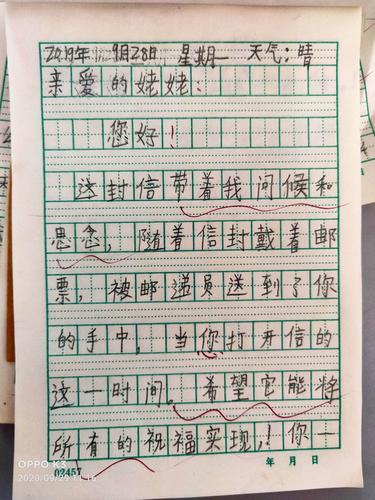 2019年 9月28日 星期一 天气:晴
亲爱的姥姥:
您好!
送封信带着我问候和
思念,随着信封戴着邮
票,被邮递员送到了你
的手中,当你打开信的
这一时间。希望它能将
所有的祝福实现,!你一
02457 年 月 日
OPPO K3
2020/09/29 11:16